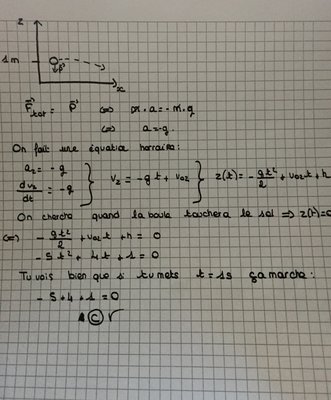 z
1m
P⃗
x
F⃗tot = P⃗ <=> m.a = -m.g
<=> a = -g.
On fait une équation horraire:
az = -g
dvz/dt = -g } vz = -gt + v0z } z(t) = -gt²/2 + v0z t + h
On cherche quand la boule touchera le sol => z(t)=0
(=) -gt²/2 + v0z t + h = 0
-5t² + 4t + 1 = 0
Tu vois bien que si tu mets t = 1s ça marche:
-5+4+1=0